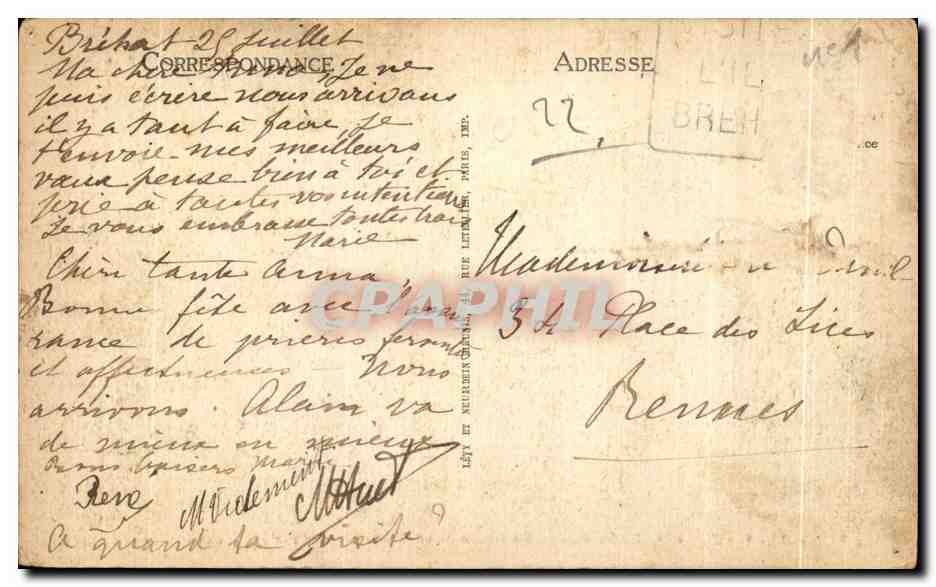 Bréhat 25 juillet
CORRESPONDANCE
Ma chère Anna, Je ne
puis écrire nous arrivons
il y a tant à faire, je
t'envoie mes meilleurs
vœux pense bien à toi et
prie à toutes vos intentions
Je vous embrasse toutes trois
Marie
Chère tante Anna,
Bonne fête avec
de prières ferventes
et affectueuses - Nous
arrivons. Alain va
de mieux en mieux
Bons baisers
René
M Clement
MHuet
A quand ta visite?
LÉVY ET NEURDEIN RÉUNIS, 44, RUE LETELLIER, PARIS, IMP.
ADRESSE
22
BREH
ce
Mademoiselle
34 Place des Lices
Rennes
CPARHIL